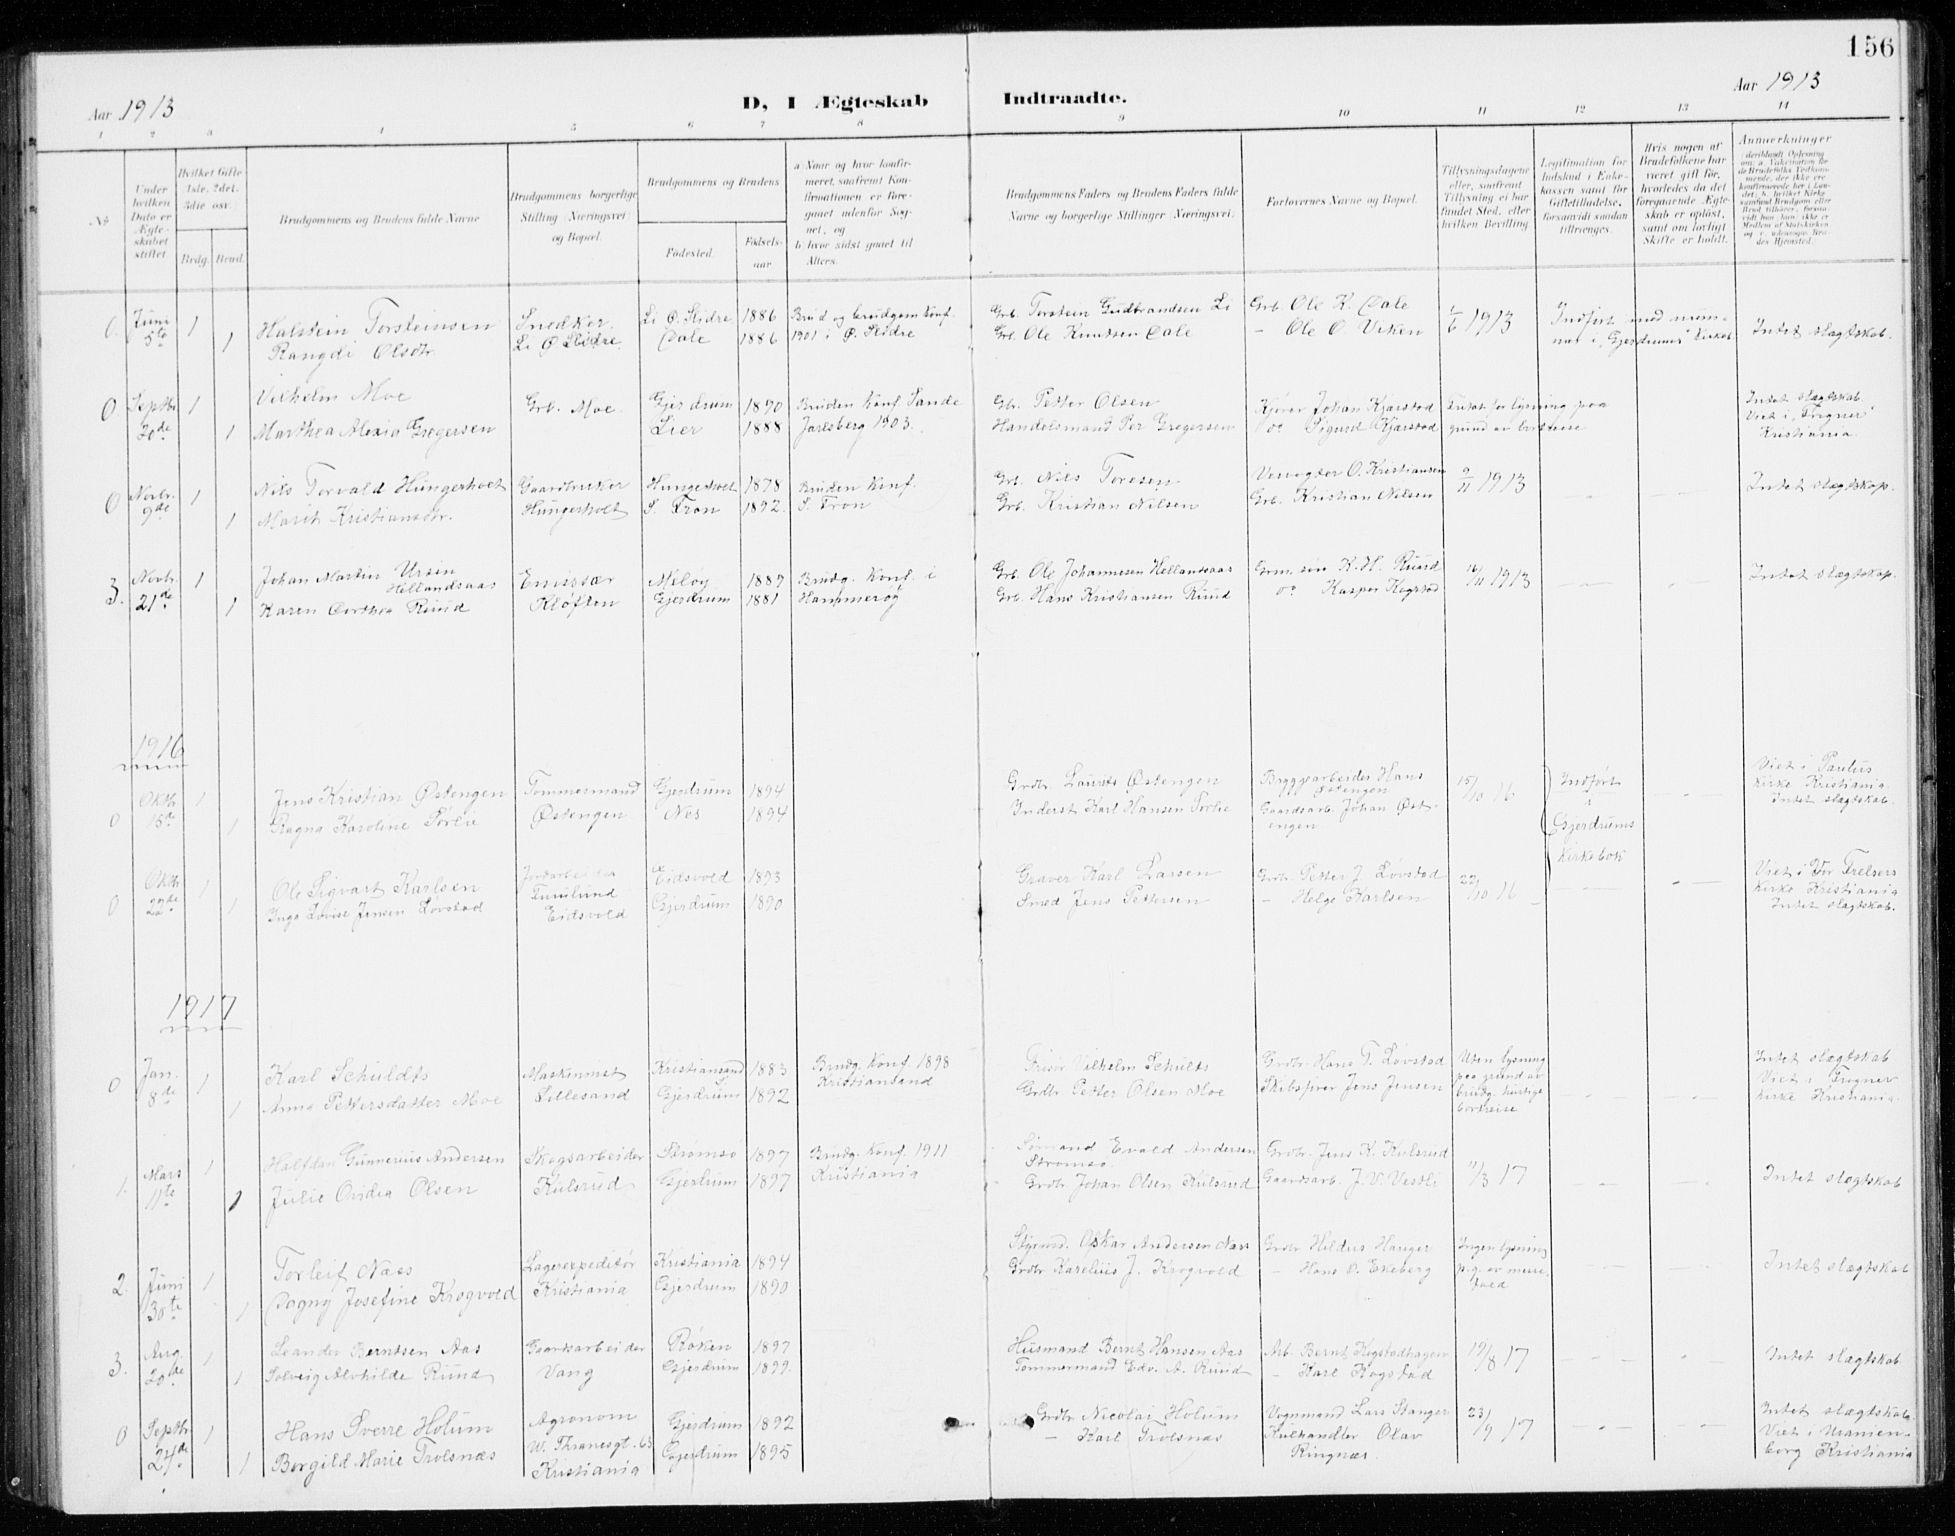 156
Aar 1913
D, I Ægteskab Indtraadte.
Aar 1913
1 2 3 4 5 6 7 8 9 10 11 12 13 14
No
Under hvilken Dato er Ægteskabet stiftet
Hvilket Gifte 1ste, 2det, 3die osv.
Brdg. Brud.
Brudgommens og Brudens fulde Navne
Brudgommens borgerlige Stilling (Næringsvei) og Bopæl.
Brudgommens og Brudens
Fødested. Fødsels-aar
a. Naar og hvor konfirmeret, saafremt Konfirmationen er foregaaet udenfor Sognet, og
b. hvor sidst gaaet til Alters.
Brudgommens Faders og Brudens Faders fulde Navne og borgerlige Stillinger (Næringsvei).
Forlovernes Navne og Bopæl.
Tillysningsdagene eller, saafremt Tillysning ei har fundet Sted, efter hvilken Bevilling
Legitimation for Indskud i Enkekassen samt for Giftetilladelse, forsaavidt saadan tiltrænges.
Hvis nogen af Brudefolkene har været gift før, hvorledes da det foregaaende Ægteskab er opløst, samt om lovligt Skifte er holdt.
Anmerkninger
0. Juni 5te 1 Halstein Torsteinsen Snedker Li Ø. Slidre 1886 Brud og brudgom konf. Grb. Torstein Gudbrandsen Li Grb. Ole K. Dale 1/6 1913 Indført med nummer i "Gjerdrums" kirkeb. Intet slægtskab.
1 Rangdi Olsdtr. Li Ø Slidre Dale 1886 1901 i Ø. Slidre Grb. Ole Knutsen Dale – Ole O. Viken
0 Septbr. 20de 1 Vilhelm Moe Grb. Moe Gjerdrum 1890 Bruden konf. Sande Gbr. Petter Olsen Kjører Johan Kjærstad Intet for lysning paa Intet slægtskab.
1 Marthea Alexia Gregersen Lier 1888 Jarlsberg 1903. Handelsmand Per Gregersen do Sigurd Kjærstad grund av bortreise Viet i "Frogner" Kristiania.
0 Novbr. 9de 1 Nils Torvald Hungerholt Gaardbruker Hungerholt 1878 Bruden konf. Grb. Nils Toresen Veivogter O. Kristiansen 9/11 1913 Intet slægtskap.
1 Marit Kristiansdtr. Hungerholt S. Fron 1892. S. Fron Grb. Kristian Nilsen Grb. Kristian Nilsen
3. Novbr. 21de 1 Johan Martin Ursin Hellandsaas Emissær Meløy 1887 Brudg. konf. i Grb. Ole Johannesen Hellandsaas Grm. søn K. H. Ruud 16/11 1913 Intet slægtskap.
1 Karen Dorthea Ruud Kløften Gjerdrum 1881 Hammerøy Grb. Hans Kristiansen Ruud do Kasper Kogstad
1916
0 Oktbr. 15de 1 Jens Kristian Østengen Tømmermand Gjerdrum 1894 Grdbr. Laurits Østengen Byggearbeider Hans Østengen 15/10 16 Indført i Gjerdrums kirkebok Viet i Paulus kirke Kristiania.
1 Ragna Karoline Sørlie Østengen Nes 1894 Inderst Karl Hansen Sørlie Gaardsarb. Johan Østengen Intet slægtskab.
0 Oktbr. 22de 1 Ole Sigvart Karlsen Jordarbeider Eidsvold 1893 Graver Karl Larsen Grdbr. Petter J. Løvstad 22/10 16 Viet i Vor Frelsers kirke Kristiania
1 Inga Lovise Jensen Løvstad Eidsvold Gjerdrum 1890 Smed Jens Pettersen – Helge Karlsen Intet slægtskab.
1917
0 Jan. 8de 1 Karl Schuldts Maskinmist Kristiansand S. 1883 Brudg. Konf. 1898 Kristiansand Frisør Vilhelm Schults Grdbr. Hans T. Løvstad Uten lysning paa grund av brudg. hurtige bortreise Intet slægtskab
1 Anna Pettersdatter Moe Lillesand Gjerdrum 1892 Grdbr. Petter Olsen Moe Skibsfører Jens Jensen Viet i Frogner kirke Kristiania.
1. Mars 11te 1 Halfdan Gunnerius Andersen Skogsarbeider Strømsø 1897 Brudg. konf. 1911 Kristiania Sømand Evald Andersen Strømsø Grdbr. Jens K. Kulsrud 11/3 17 Intet slegtskab
1 Julie Ovidia Olsen Kulsrud Gjerdrum 1897 Grdbr. Johan Olsen Kulsrud Gaardsarb. J. V. Vestli
2. Juni 30te 1 Torleif Næss Lagerexpeditør Kristiania 1894 Styrmd. Oskar Andersen Næss Grdbr. Hildus Hauger Ingen lysning Intet slægtskab
1 Dagny Josefine Krogvold Kristiania Gjerdrum 1890 Grdbr Karelius J. Krogvold – Hans O. Ekeberg
3. Aug. 20de 1 Leander Berntsen Aas Gaardsarbeider Røken 1897 Husmand Bernt Hansen Aas Arb. Bernt Kogstadhagen 19/8 17 Intet slægtskab
1 Solveig Alvhilde Ruud Vang Gjerdrum 1899. Tømmermand Edv. A. Ruud – Karl Kogstad
0 Septbr. 24de 1 Hans Sverre Holum Agronom Gjerdrum 1892 Grdbr. Nicolai Holum Vognmand Lars Stanger 23/9 17 Intet slægtskab
1 Borgild Marie Trolsnæs W. Thranesgt. 63 Kristiania Gjerdrum 1895 – Karl Trolsnæs Kulhandler Olav Ringnæs. Viet i Uranienborg Kristiania